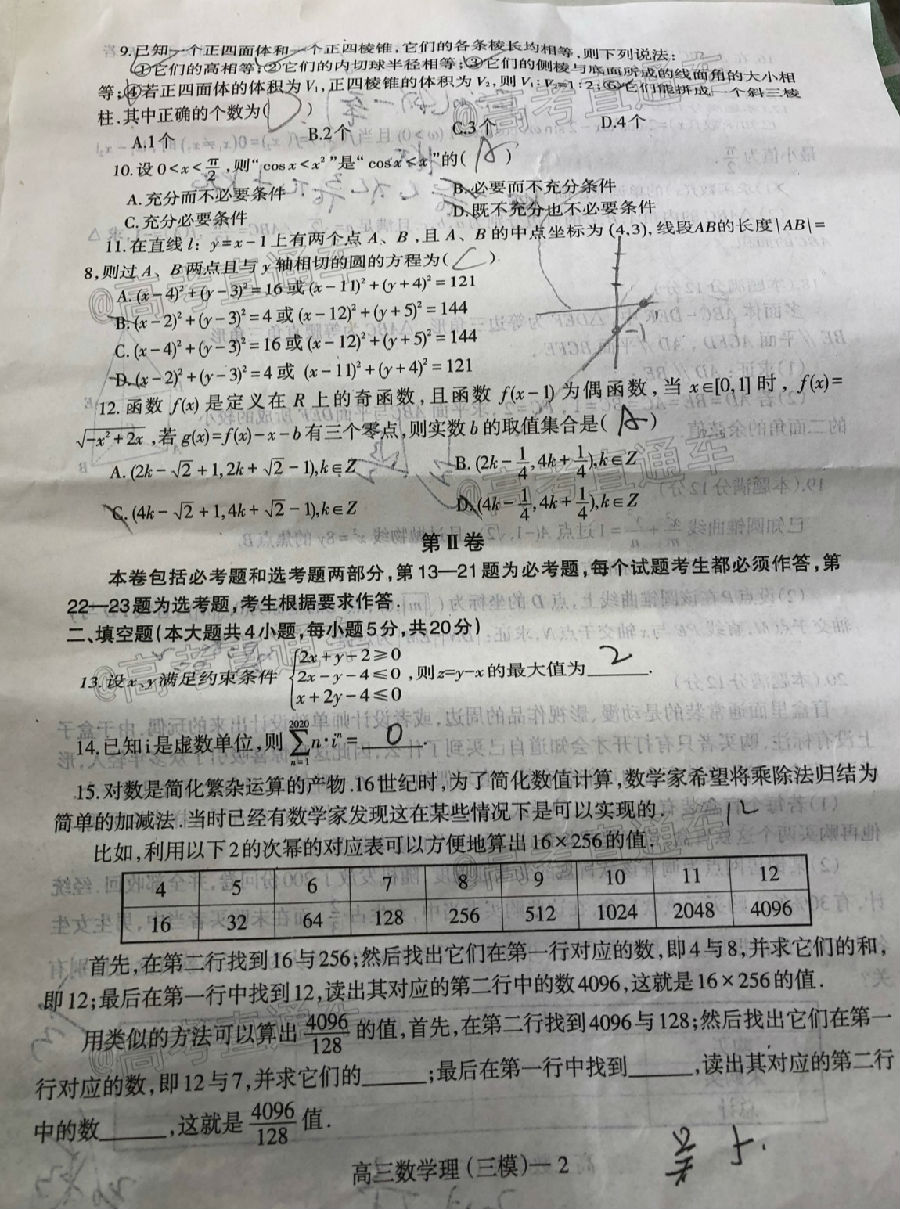 9.已知一个正四面体和一个正四棱锥,它们的各条棱长均相等,则下列说法:
①它们的高相等;②它们的内切球半径相等;③它们的侧棱与底面所成的线面角的大小相
等;④若正四面体的体积为V₁,正四棱锥的体积为V₂,则V₁:V₂=1:2;⑤它们能拼成一个斜三棱
柱.其中正确的个数为( )
A.1个 B.2个 C.3个 D.4个
10.设0<x<π/2,则“cosx<x²”是“cosx<x”的( A )
A.充分而不必要条件 B.必要而不充分条件
C.充分必要条件 D.既不充分也不必要条件
11.在直线l:y=x-1上有两个点A、B,且A、B的中点坐标为(4,3),线段AB的长度|AB|=
8,则过A、B两点且与y轴相切的圆的方程为( C )
A.(x-4)²+(y-3)²=16或(x-11)²+(y+4)²=121
B.(x-2)²+(y-3)²=4或(x-12)²+(y+5)²=144
C.(x-4)²+(y-3)²=16或(x-12)²+(y+5)²=144
D.(x-2)²+(y-3)²=4或(x-11)²+(y+4)²=121
12.函数f(x)是定义在R上的奇函数,且函数f(x-1)为偶函数,当x∈[0,1]时,f(x)=
√(-x²+2x),若g(x)=f(x)-x-b有三个零点,则实数b的取值集合是( A )
A.(2k-√2+1,2k+√2-1),k∈Z B.(2k-1/4,4k+1/4),k∈Z
C.(4k-√2+1,4k+√2-1),k∈Z D.(4k-1/4,4k+1/4),k∈Z
第Ⅱ卷
本卷包括必考题和选考题两部分,第13—21题为必考题,每个试题考生都必须作答,第
22—23题为选考题,考生根据要求作答.
二、填空题(本大题共4小题,每小题5分,共20分)
13.设x、y满足约束条件{2x+y-2≥0 2x-y-4≤0 x+2y-4≤0,则z=y-x的最大值为 2 .
14.已知i是虚数单位,则∑(n=1到2020)n·iⁿ= 0 .
15.对数是简化繁杂运算的产物.16世纪时,为了简化数值计算,数学家希望将乘除法归结为
简单的加减法.当时已经有数学家发现这在某些情况下是可以实现的.
比如,利用以下2的次幂的对应表可以方便地算出16×256的值.
4 5 6 7 8 9 10 11 12
16 32 64 128 256 512 1024 2048 4096
首先,在第二行找到16与256;然后找出它们在第一行对应的数,即4与8,并求它们的和,
即12;最后在第一行中找到12,读出其对应的第二行中的数4096,这就是16×256的值.
用类似的方法可以算出4096/128的值,首先,在第二行找到4096与128;然后找出它们在第一
行对应的数,即12与7,并求它们的______;最后在第一行中找到______,读出其对应的第二行
中的数______,这就是4096/128值.
高三数学理(三模)—2
@高考直通车